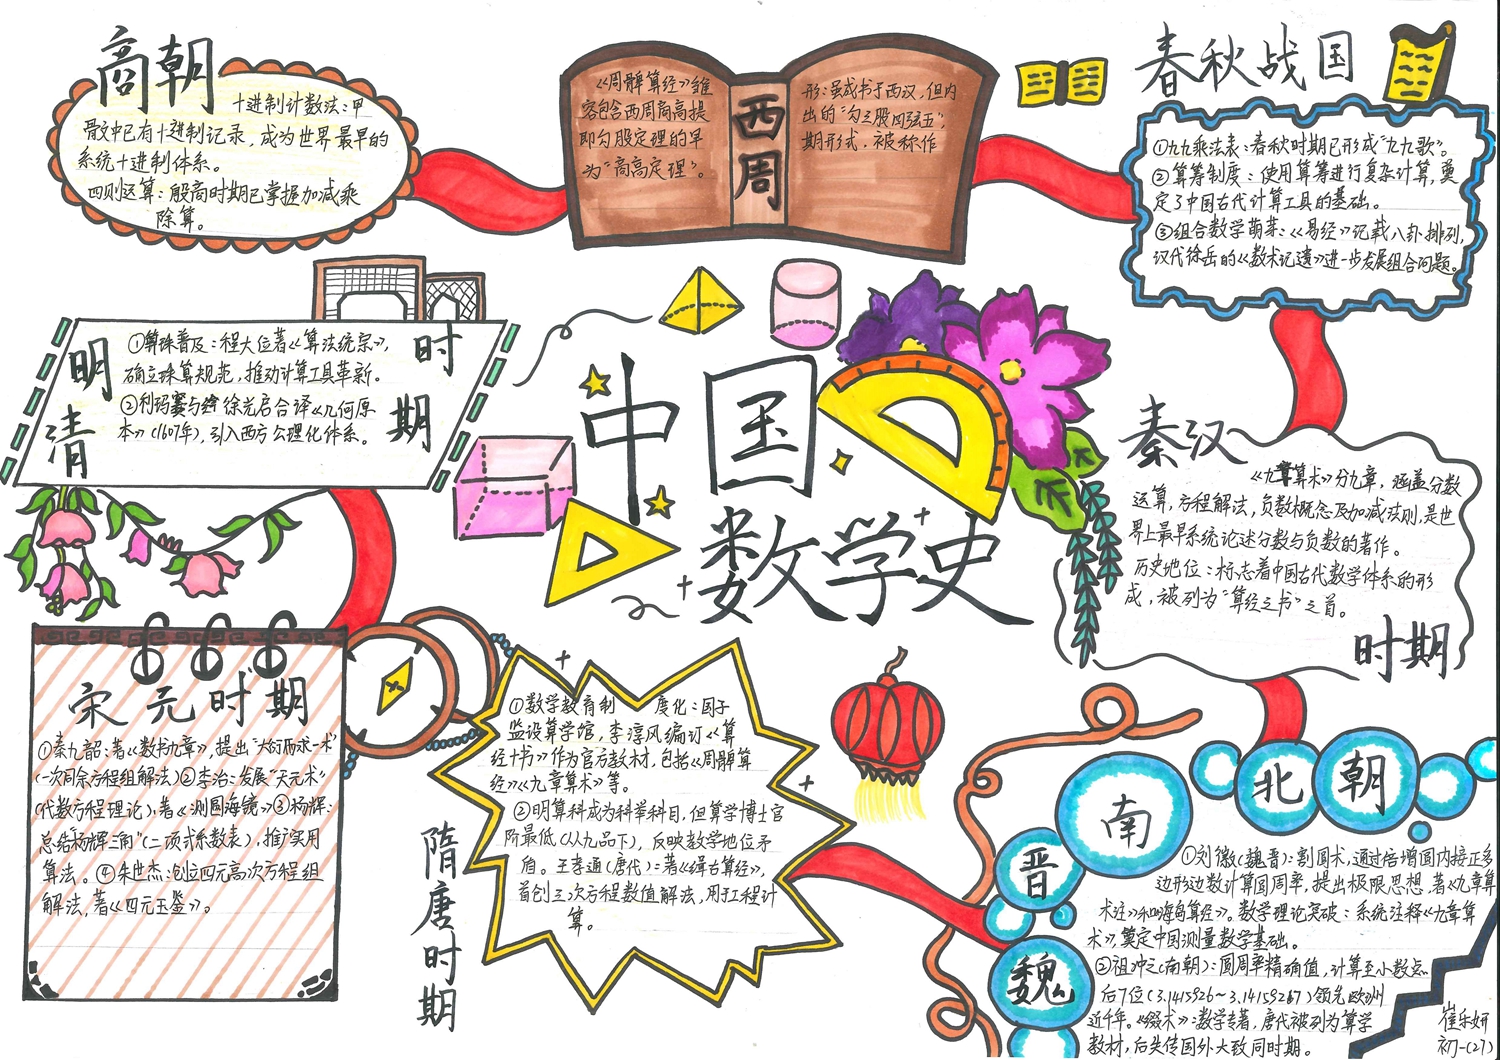 商朝
十进制计数法：甲
骨文中已有十进制记录，成为世界最早的
系统十进制体系。
四则运算：殷商时期已掌握加减乘
除算。
西周
《周髀算经》虽
容包含西周商高提
即勾股定理的早
为“商高定理”。
形：虽成书于西汉，但内
出的“勾三股四弦五”，
期形式，被称作
春秋战国
①九九乘法表：春秋时期已形成“九九歌”。
②算筹制度：使用算筹进行复杂计算，奠
定了中国古代计算工具的基础。
③组合数学萌芽：《易经》记载八卦排列，
汉代徐岳的《数术记遗》进一步发展组合问题。
明清
时期
①算珠普及：程大位著《算法统宗》，
确立珠算规范，推动计算工具革新。
②利玛窦与徐光启合译《几何原
本》（1607年），引入西方公理化体系。
中国
数学史
秦汉
《九章算术》分九章，涵盖分数
运算，方程解法，负数概念及加减法则，是世
界上最早系统论述分数与负数的著作。
历史地位：标志着中国古代数学体系的形
成，被列为“算经之书”之首。
时期
宋元时期
①秦九韶：著《数书九章》，提出“大衍求一术”
（一次同余方程组解法）②李冶：发展“天元术”
（代数方程理论），著《测圆海镜》③杨辉：
总结“杨辉三角”（二项式系数表），推广实用
算法。④朱世杰：创立四元高次方程组
解法，著《四元玉鉴》。
隋唐时期
①数学教育制 度化：国子
监设算学馆，李淳风编订《算
经十书》作为官方教材，包括《周髀算
经》《九章算术》等。
②明算科成为科举科目，但算学博士官
阶最低（从九品下），反映数学地位矛
盾。王孝通（唐代）：著《缉古算经》，
首创三次方程数值解法，用于工程计
算。
魏晋南北朝
①刘徽（魏晋）：割圆术，通过倍增圆内接正多
边形边数计算圆周率，提出极限思想，著《九章算
术注》和《海岛算经》。数学理论突破：系统注释《九章算
术》，奠定中国测量数学基础。
②祖冲之（南朝）：圆周率精确值，计算至小数点
后7位（3.1415926～3.1415927）领先欧洲
近千年。《缀术》：数学专著，唐代被列为算学
教材，后失传国外大致同时期。
崔乐妍
初一（27）